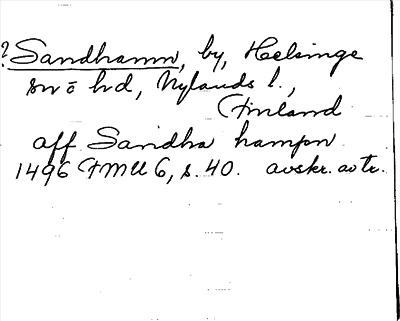 ? Sandhamn, by, Helsinge
sn o hd, Nylands l.,
Finland
aff Sandha hampn
1496 FMU 6, s. 40. avskr. av tr.